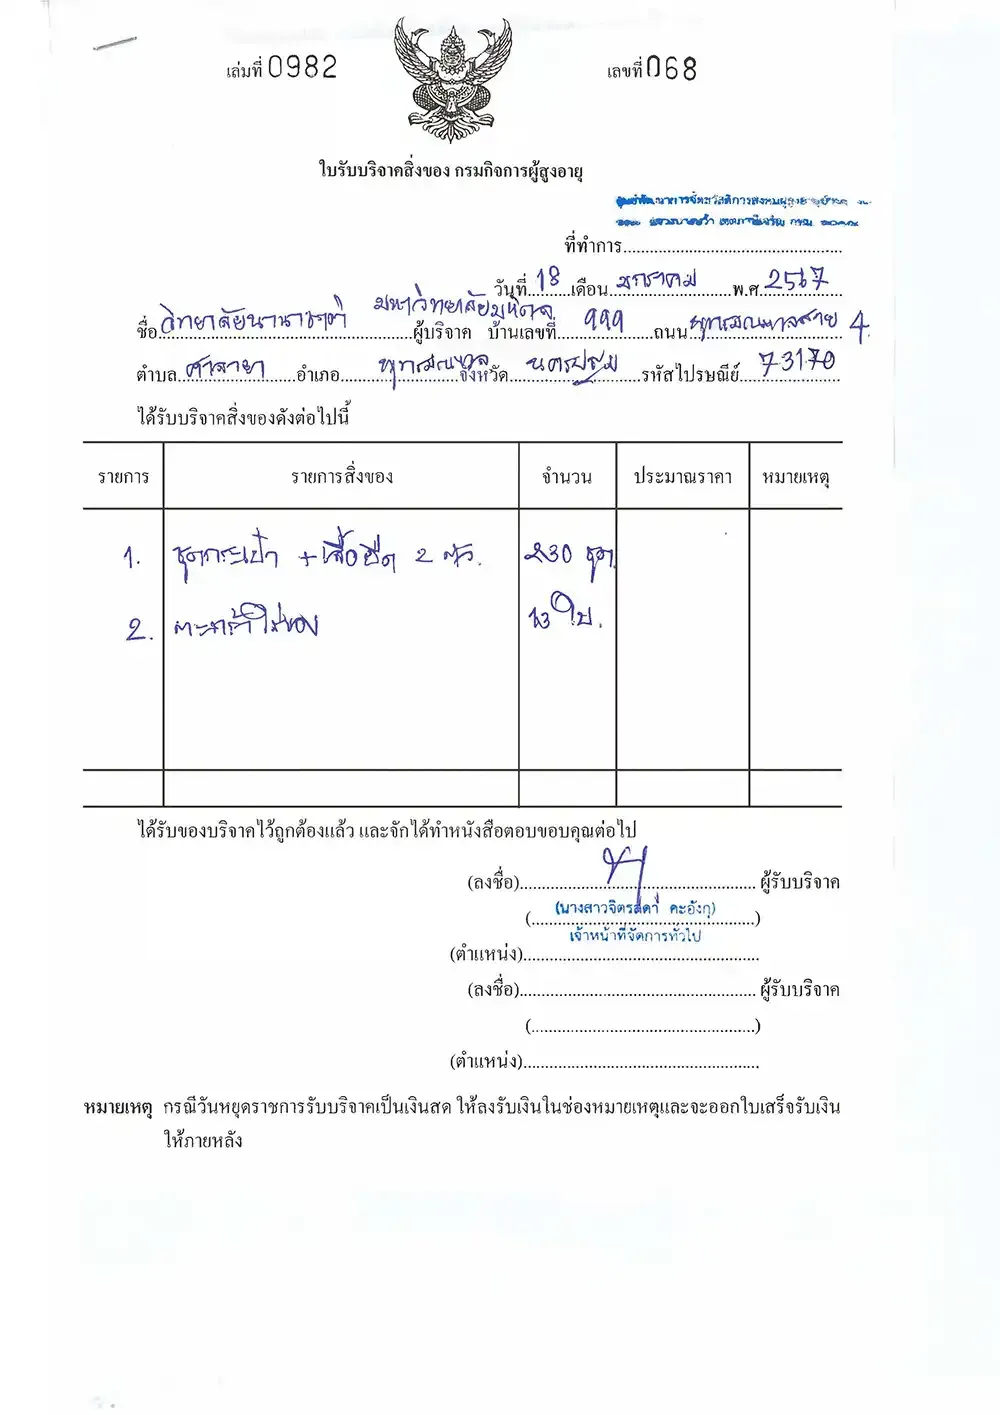 เล่มที่ 0982 เลขที่ 068
ใบรับบริจาคสิ่งของ กรมกิจการผู้สูงอายุ
ที่ทำการ
วันที่ 18 เดือน มกราคม พ.ศ. 2567
ชื่อ วิทยาลัยนานาชาติ มหาวิทยาลัยมหิดล ผู้บริจาค บ้านเลขที่ 999 ถนน พุทธมณฑลสาย 4
ตำบล ศาลายา อำเภอ พุทธมณฑล จังหวัด นครปฐม รหัสไปรษณีย์ 73170
ได้รับบริจาคสิ่งของดังต่อไปนี้
รายการ รายการสิ่งของ จำนวน ประมาณราคา หมายเหตุ
1. ชุดกระเป๋า + เสื้อยืด 2 ตัว. 230 ชุด
2. ตะกร้าใส่ของ 13 ใบ.
ได้รับของบริจาคไว้ถูกต้องแล้ว และจักได้ทำหนังสือตอบขอบคุณต่อไป
(ลงชื่อ) ผู้รับบริจาค
(นางสาวจิตรลดา คะอังกุ)
เจ้าหน้าที่จัดการทั่วไป
(ตำแหน่ง)
(ลงชื่อ) ผู้รับบริจาค
( )
(ตำแหน่ง)
หมายเหตุ กรณีวันหยุดราชการรับบริจาคเป็นเงินสด ให้ลงรับเงินในช่องหมายเหตุและจะออกใบเสร็จรับเงิน
ให้ภายหลัง